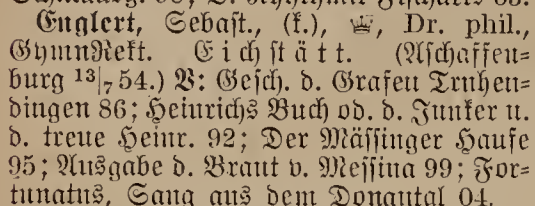 Englert, Sebast., (k.), ♕, Dr. phil.,
GymnRekt. Eichstätt. (Aschaffen=
burg 13|7 54.) V: Gesch. d. Grafen Truhen=
dingen 86; Heinrichs Buch od. d. Junker u.
d. treue Heinr. 92; Der Mässinger Haufe
95; Ausgabe d. Braut v. Messina 99; For=
tunatus, Sang aus dem Donautal 04.